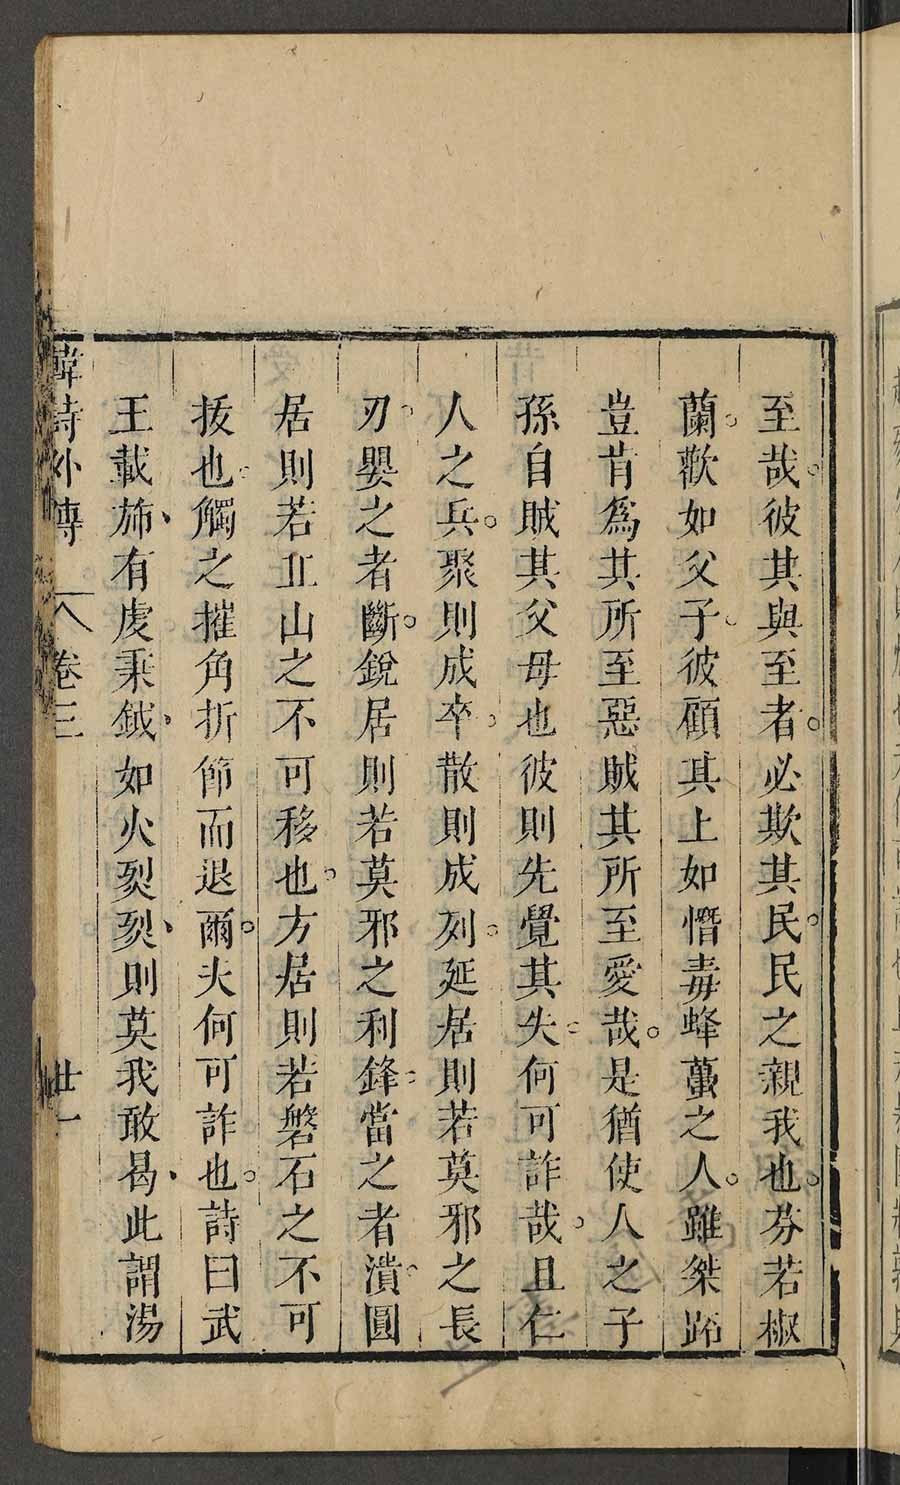 至哉彼其與至者必欺其民民之親我也芬若椒
蘭歡如父子彼顧其上如憯毒蜂蠆之人雖桀跖
豈肯爲其所至惡賊其所至愛哉是猶使人之子
孫自賊其父母也彼則先覺其失何可詐哉且仁
人之兵聚則成卒散則成列延居則若莫邪之長
刃嬰之者斷銳居則若莫邪之利鋒當之者潰圓
居則若丘山之不可移也方居則若磐石之不可
拔也觸之摧角折節而退爾夫何可詐也詩曰武
王載旆有虔秉鉞如火烈烈則莫我敢曷此謂湯
韓詩外傳 卷三 廿一